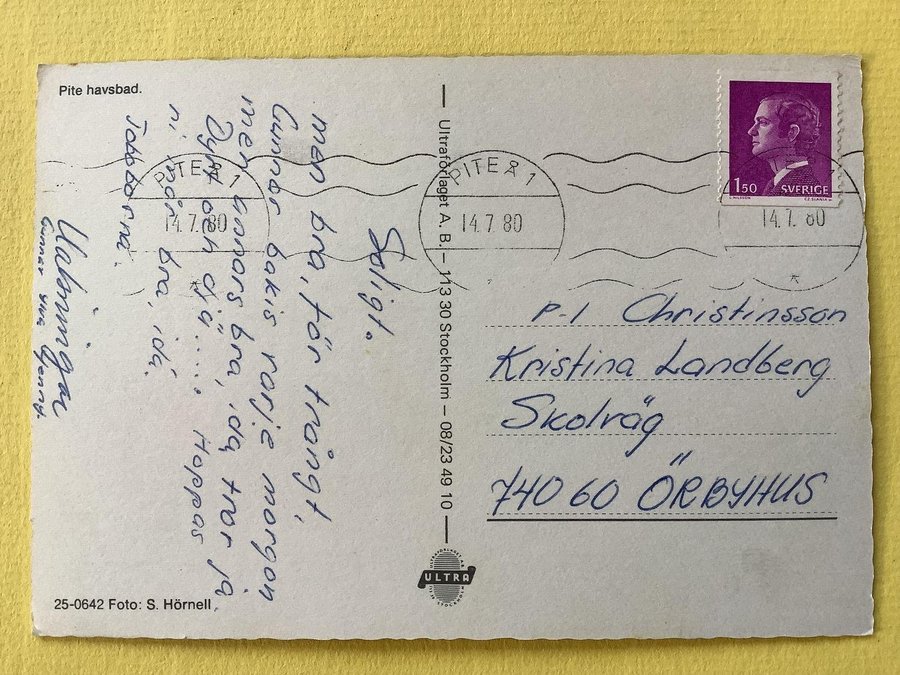 Pite havsbad.
Soligt.
men bra, för trångt,
Gunnar bakis varje morgon
men annars bra, idag tror ja.
Dyrt och då..... Hoppas
ni mår bra, idå.
Jobbarna.
Gunnar Jenny.
25-0642 Foto: S. Hörnell
Ultraförlaget A. B. – 113 30 Stockholm – 08/23 49 10
ULTRA
PITEÅ 1
14.7.80
PITEÅ 1
14.7.80
1
14.7.80
1 50 SVERIGE
P-I Christinsson
Kristina Landberg
Skolväg
740 60 ÖRBYHUS